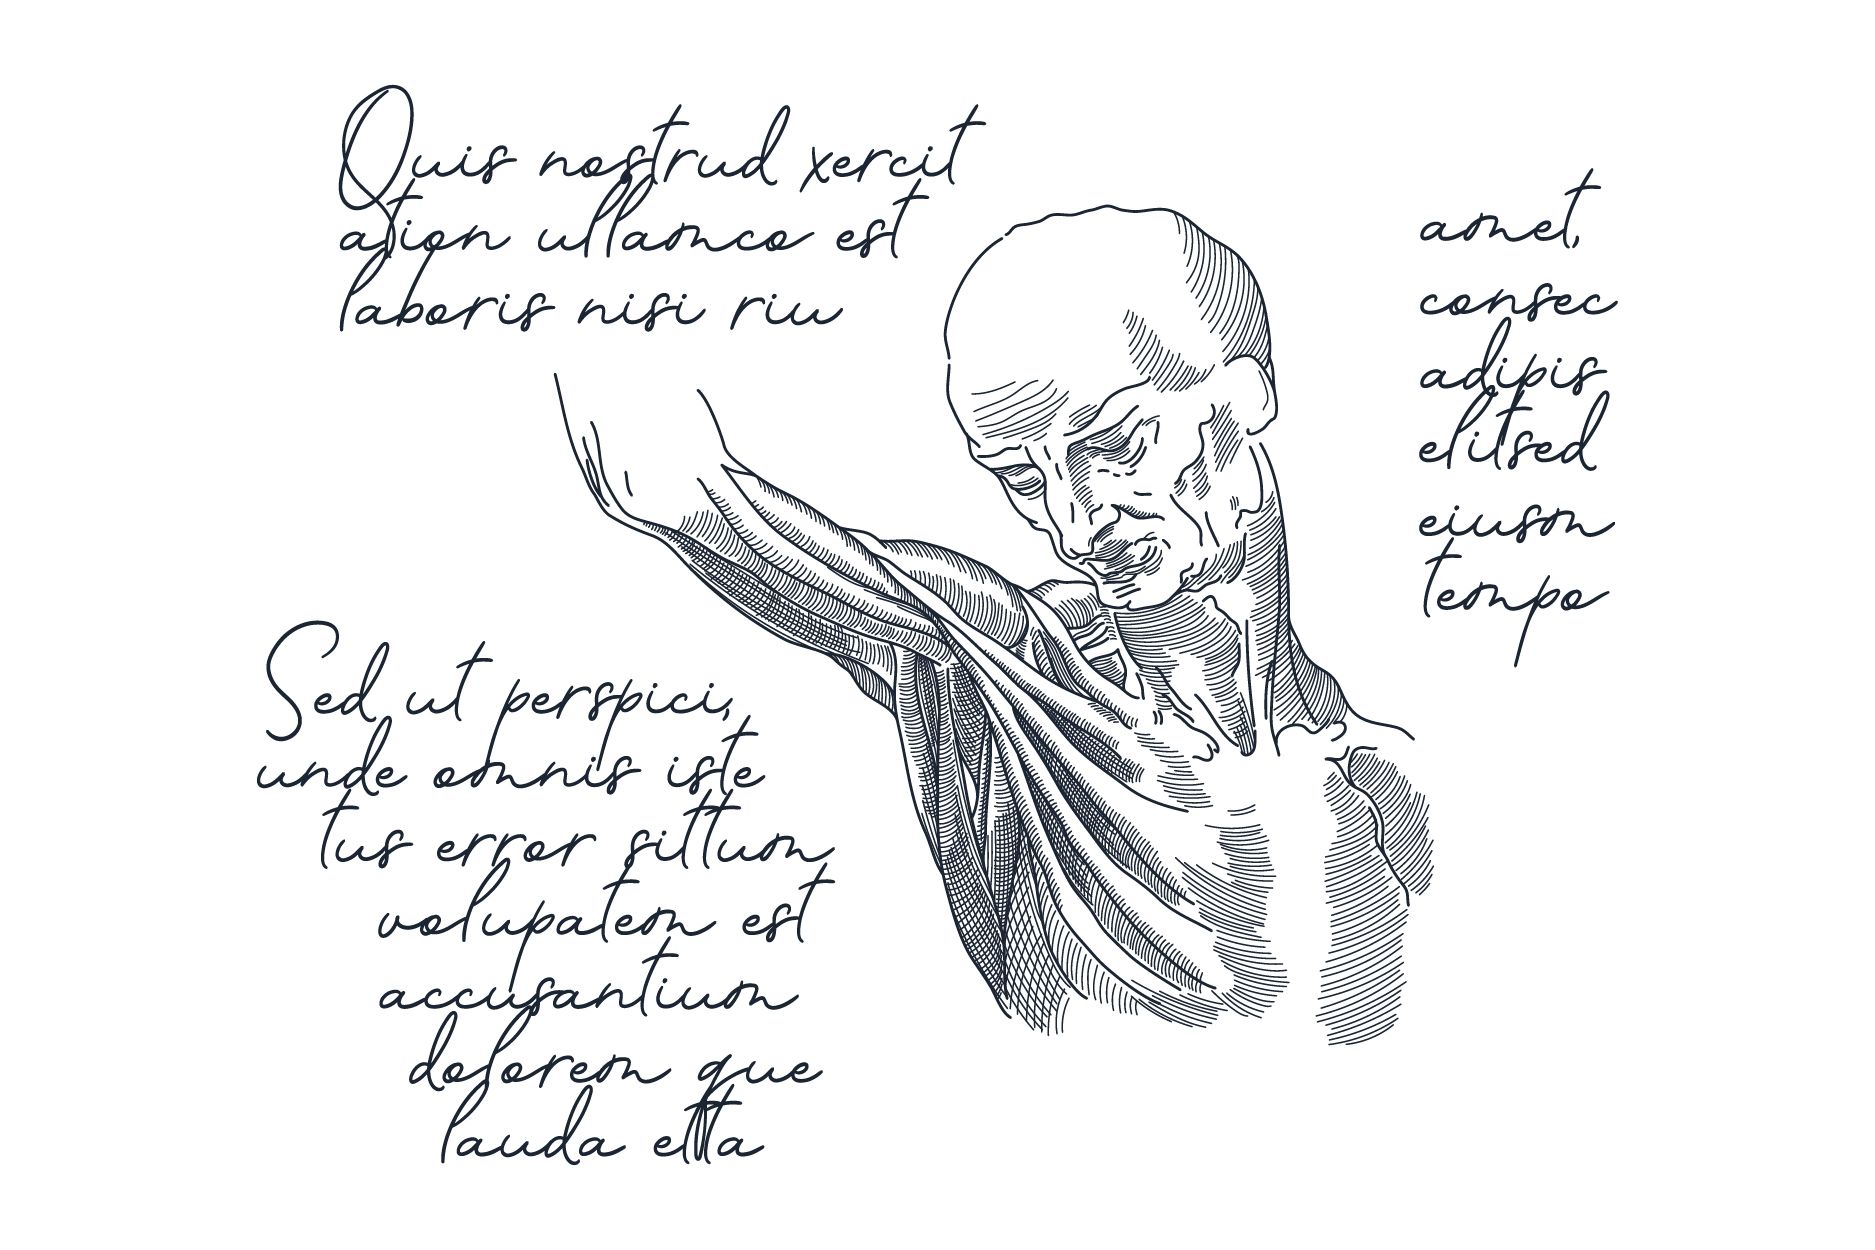 Quis nostrud xercit
ation ullamco est
laboris nisi riu
amet,
consec
adipis
elitsed
eiusm
tempo
Sed ut perspici,
unde omnis iste
tus error sittum
volupatem est
accusantium
dolorem que
lauda etta